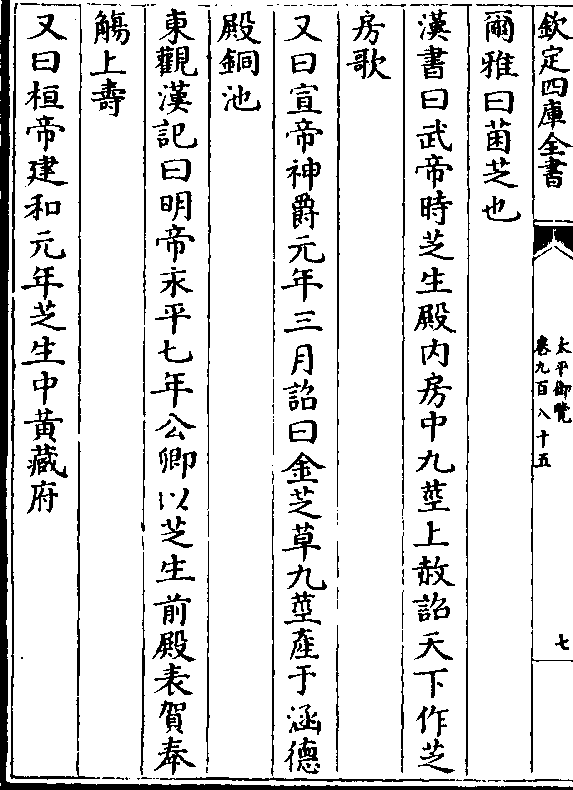 欽定四庫全書
太平御覽
卷九百八十五
七
爾雅曰茵芝也
漢書曰武帝時芝生殿内房中九莖上赦詔天下作芝
房歌
又曰宣帝神爵元年三月詔曰金芝草九莖產于涵德
殿銅池
東觀漢記曰明帝永平七年公卿以芝生前殿表賀奉
觴上壽
又曰桓帝建和元年芝生中黃藏府